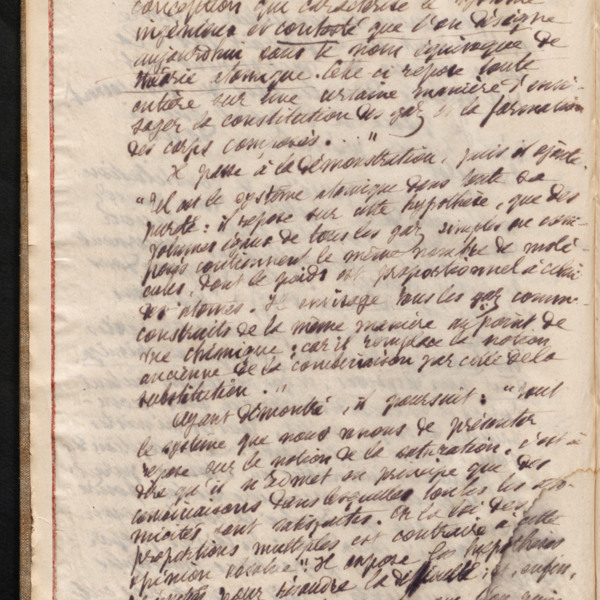 conception qui caractérise le système
ingénieux et contesté que l'on désigne
aujourdhui sous le nom équivoque de
théorie atomique. Celle ci repose toute
entière sur une certaine manière d'envi-
sager la constitution des gaz et la formation
des corps composés. . . "
X passe à la démonstration, puis il ajoute.
"Tel est le système atomique dans toute sa
pureté : il repose sur cette hypothèse, que des
volumes égaux de tous les gaz simples ou com-
posés contiennent le même nombre de molé-
cules, dont le poids est proportionnel à celui
des atomes. Il envisage tous les gaz comme
construits de la même manière au point de
vue chimique ; car il remplace la notion
ancienne de la combinaison par celle de la
substitution. "
Ayant démontré, il poursuit : "Tout
le système que nous venons de présenter
repose sur le notion de la saturation, c'est à
dire qu'il n'admet en principe que des
combinaisons dans lesquelles toutes les ato-
micités sont satisfaites. Or la loi des
proportions multiples est contraire à cette
opinion absolue". Il expose les hypothèses
pour résoudre la difficulté ; et, enfin,